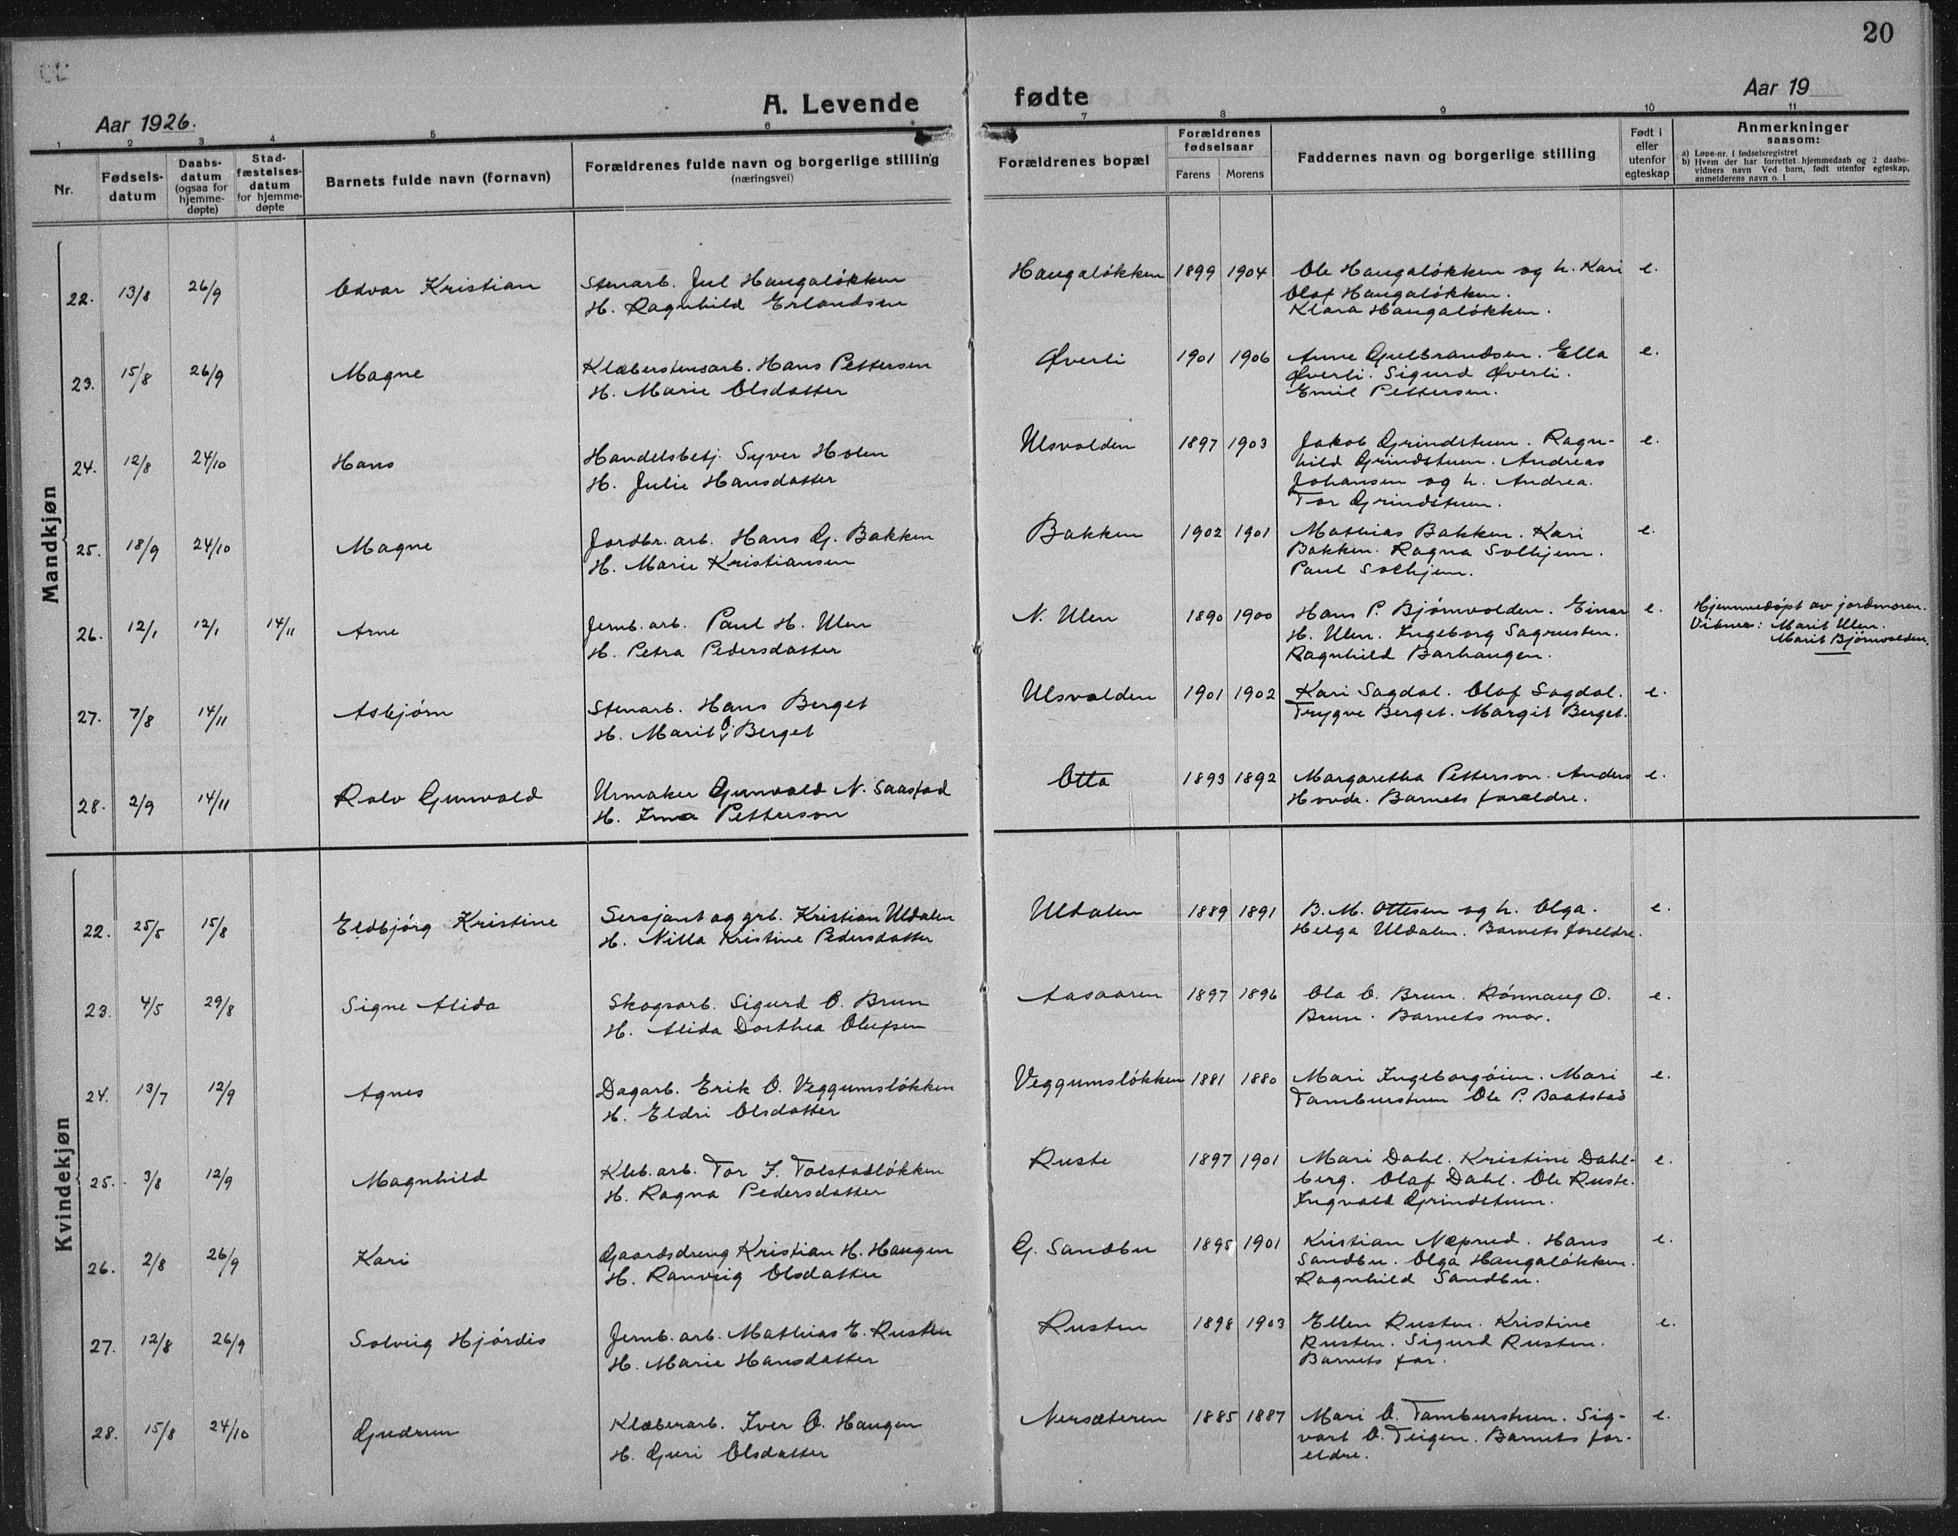 20
A. Levende fødte
Aar 1926.
Aar 19
1 2 3 4 5 6 7 8 9 10 11
Nr.
Fødsels-
datum
Daabs-
datum
(ogsaa for
hjemme-
døpte)
Stad-
fæstelses-
datum
for hjemme-
døpte
Barnets fulde navn (fornavn)
Forældrenes fulde navn og borgerlige stilling
(næringsvei)
Forældrenes bopæl
Forældrenes
fødselsaar
Farens Morens
Faddernes navn og borgerlige stilling
Født i
eller
utenfor
egteskap
Anmerkninger
saasom:
a) Løpe-nr. i fødselsregistret
b) Hvem der har forrettet hjemmedaab og 2 daabs-
vidners navn Ved barn, født utenfor egteskap,
anmelderens navn o. l
Mandkjøn
22. 13/8 26/9 Odvar Kristian Stenarb. Jul Haugaløkken Haugaløkken 1899 1904 Ole Haugaløkken og h. Kari e.
H. Ragnhild Erlandsen Olaf Haugaløkken.
Klara Haugaløkken.
23. 15/8 26/9 Magne Klæberstensarb. Hans Pettersen Øverli 1901 1906 Anne Gulbrandsen. Ella e.
H. Marie Olsdatter Øverli. Sigurd Øverli.
Emil Pettersen.
24. 12/8 24/10 Hans Handelsbetj. Syver Holen Ulsvolden 1897 1903 Jakob Grindstuen. Ragn- e.
H. Julie Hansdatter hild Grindstuen. Andreas
Johansen og h. Andrea.
Tor Grindstuen.
25. 18/9 24/10 Magne Jordbr. arb. Hans G. Bakken Bakken 1902 1901 Mathias Bakken. Kari e.
H. Marie Kristiansen Bakken. Ragna Solhjem.
Paul Solhjem.
26. 12/1 12/1 14/11 Arne Jernb. arb. Paul H. Ulen N. Ulen 1890 1900 Hans P. Bjørnvolden. Einar e. Hjemmedøpt av jordmoren.
H. Petra Pedersdatter H. Ulen. Ingeborg Sagrusten. Vidner: Marit Ulen.
Ragnhild Barhaugen. Marit Bjørnvolden.
27. 7/8 14/11 Asbjørn Stenarb. Hans Berget Ulsvolden 1901 1902 Kari Sagdal. Olaf Sagdal. e.
H. Marit O. Berget Trygve Berget. Margit Berget.
28. 2/9 14/11 Rolv Gunvald Urmaker Gunvald N. Saastad Otta 1893 1892 Margaretha Petterson. Anders e.
H. Irma Petterson Hovde. Barnets forældre.
Kvindekjøn
22. 25/5 15/8 Eldbjørg Kristine Sersjant og grb. Kristian Uldalen Uldalen 1889 1891 B. M. Ottesen og h. Olga. e.
H. Nilla Kristine Pedersdatter Helga Uldalen. Barnets foreldre.
23. 4/5 29/8 Signe Alida Skogsarb. Sigurd O. Brun Aasaaren 1897 1896 Ola O. Brun. Rønnaug O. e.
H. Alida Dorthea Olufsen Brun. Barnets mor.
24. 13/7 12/9 Agnes Dagarb. Erik O. Veggumsløkken Veggumsløkken 1881 1880 Mari Ingeborgøien. Mari e.
H. Eldri Olsdatter Tamburstuen Ole P. Baatstad
25. 3/8 12/9 Magnhild Kleb. arb. Tor J. Tolstadløkken Ruste 1897 1901 Mari Dahl. Kristine Dahl- e.
H. Ragna Pedersdatter berg. Olaf Dahl. Ole Ruste.
Ingvald Grindstuen.
26. 2/8 26/9 Kari Gaardsdreng Kristian H. Haugen G. Sandbu 1895 1901 Kristian Næprud. Hans e.
H. Ranveig Olsdatter Sandbu. Olga Haugaløkken.
Ragnhild Sandbu.
27. 12/8 26/9 Solveig Hjørdis Jernb. arb. Mathias E. Rusten Rusten 1898 1903 Ellen Rusten. Kristine e.
H. Marie Hansdatter Rusten. Sigurd Rusten.
Barnets far.
28. 15/8 24/10 Gudrun Klæberarb. Iver O. Haugen Nersæteren 1885 1887 Mari O. Tamburstuen. Sig- e.
H. Guri Olsdatter vart O. Teigen. Barnets for-
eldre.